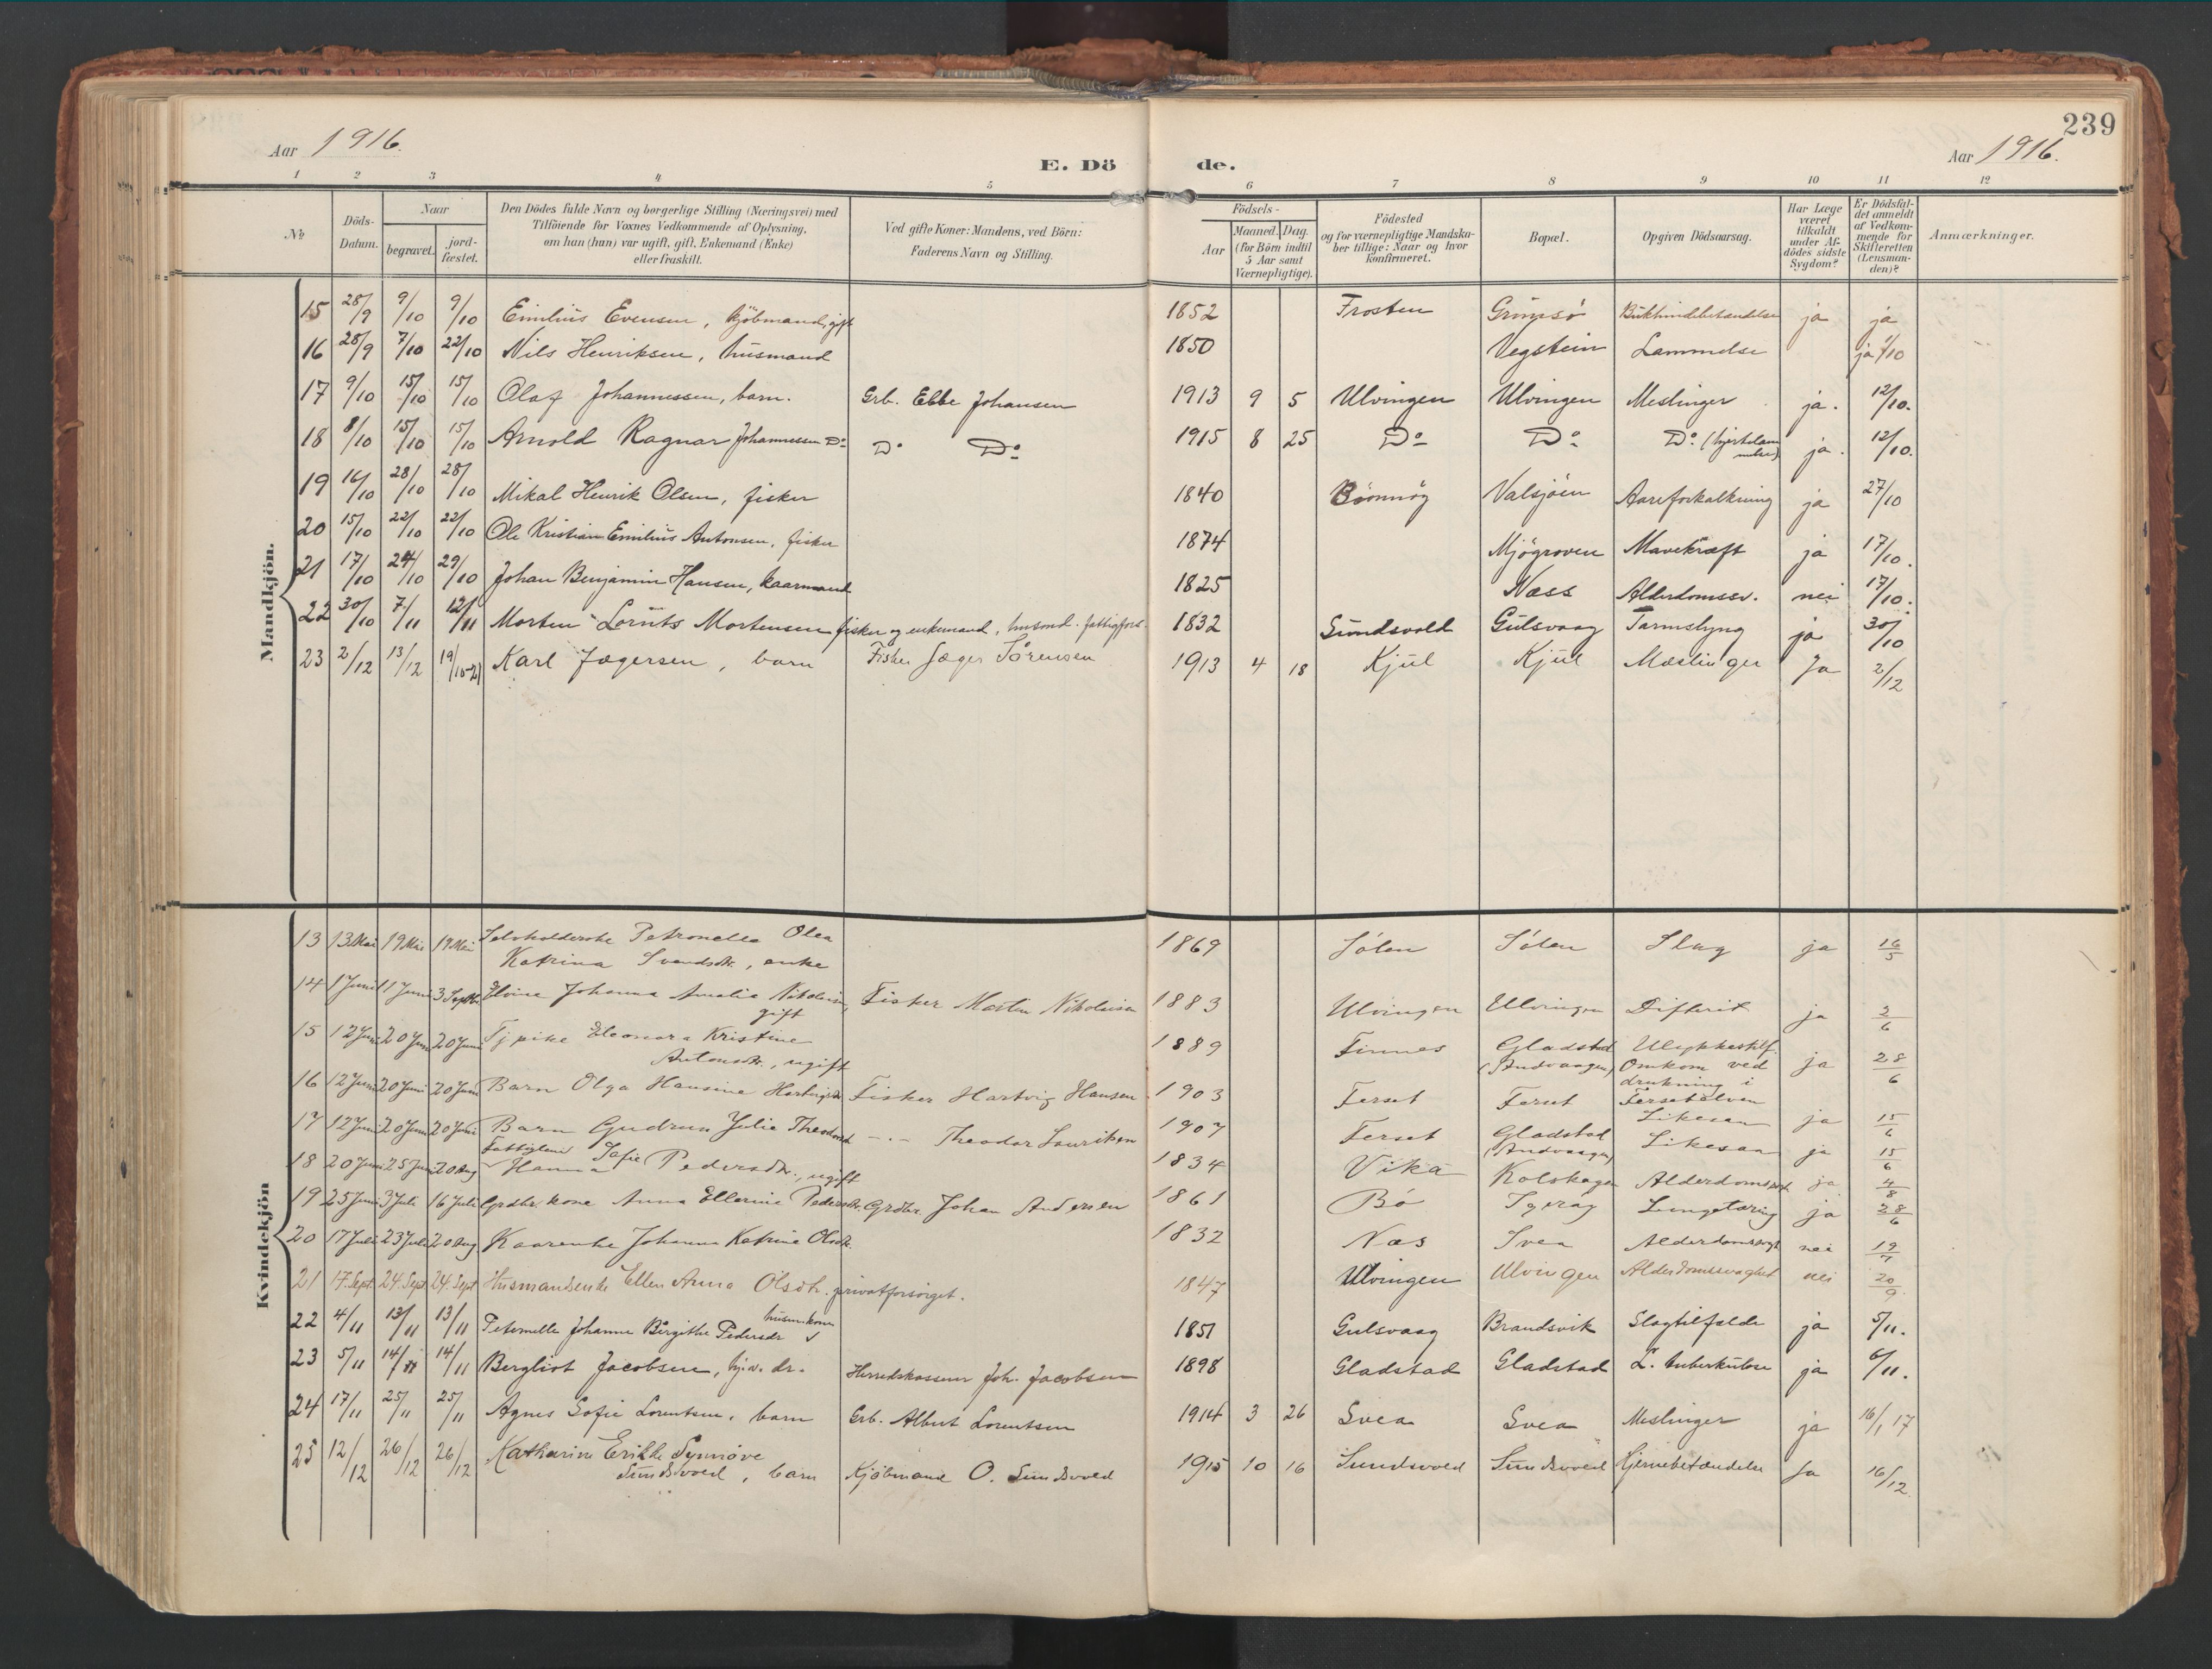 239
Aar 1916.
E. Dö de.
Aar 1916.
1 2 3 4 5 6 7 8 9 10 11 12
№
Döds-Datum.
Naar
begravet.
jord-fæstet.
Den Dödes fulde Navn og borgerlige Stilling (Næringsvei) med
Tilföiende for Voxnes Vedkommende af Oplysning,
om han (hun) var ugift, gift, Enkemand (Enke)
eller fraskilt.
Ved gifte Koner: Mandens, ved Börn:
Faderens Navn og Stilling.
Födsels-
Aar
Maaned. Dag.
(for Börn indtil
5 Aar samt
Værnepligtige).
Födested
og for værnepligtige Mandska-
ber tillige: Naar og hvor
konfirmeret.
Bopæl.
Opgiven Dödsaarsag.
Har Læge
været
tilkaldt
under Af-
dödes sidste
Sygdom?
Er Dödsfal-
det anmeldt
af Vedkom-
mende for
Skifteretten
(Lensman-
den)?
Anmærkninger.
Mandkjön.
15 28/9 9/10 9/10 Emilius Evensen, kjöbmand, gift 1852 Frosten Grimsö Bukhindebetændelse ja ja
16 28/9 7/10 22/10 Nils Henriksen, husmand 1850 Vegstein Lammelse ja 1/10
17 9/10 15/10 15/10 Olaf Johannessen, barn. Grb. Ebbe Johansen 1913 9 5 Ulvingen Ulvingen Meslinger ja. 12/10.
18 8/10 15/10 15/10 Arnold Ragnar Johannessen Do Do Do 1915 8 25 Do Do Do (hjertelammelse) ja. 12/10.
19 16/10 28/10 28/10 Mikal Henrik Olsen, fisker 1840 Brönnöy Valsjöen Aareforkalkning ja 27/10
20 15/10 22/10 22/10 Ole Kristian Emilius Antonsen, fisker 1874 Mjögroven Mavekræft ja 17/10.
21 17/10 24/10 29/10 Johan Benjamin Hansen, kaarmand 1825 Næss Alderdomssv. nei 17/10.
22 30/10 7/11 12/11 Morten Lornts Mortensen fisker og enkemand, husmd. fattigfors. 1832 Sundsvold Gulsvaag Tarmslyng ja 30/10
23 2/12 13/12 19/ Karl Jægersen, barn Fisker Jæger Sörensen 1913 4 18 Kjul Kjul Mæslinger Ja 2/12
Kvindekjön
13 13 Mai 19 Mai 19 Mai Selvholderske Petronella Olea
Katrina Svendsdtr., enke 1869 Sölen Sölen Slag ja 16/5
14 1 Juni 11 Juni 3 Septbr. Elvine Johanna Amalia Nikolaisen,
gift Fisker Martin Nikolaisen 1883 Ulvingen Ulvingen Difterit ja 2/6
15 12 Juni 20 Juni 20 Juni Tj pike Eleonora Kristine
Antonsdtr., ugift 1889 Finnes Gladstad
(Andvaagen) Ulykkestilf.
Omkom ved
drukning i
Fersetelven ja 28/6
16 12 Juni 20 Juni 20 Juni Barn Olga Hansine Hartvigsdtr. Fisker Hartvig Hansen 1903 Ferset Ferset Likesaa ja 15/6
17 12 Juni 20 Juni 20 Juni Barn Gudrun Julie Theodorsdt -"- Theodor Lauritsen 1907 Ferset Gladstad
(Andvaagen) Likesaa ja 15/6
18 20 Juni 25 Juni 20 Aug Fattiglem Sofie
Hanna Pedersdtr., ugift 1834 Vika Kolskagen Alderdomssv. ja 4/8
19 25 Juni 3 Juli 16 Juli Grdbr. kone Anna Ellerine Pedersdtr. Grdbr. Johan Andersen 1861 Bö Igeröy Lungetæring ja 28/6
20 17 Juli 23 Juli 20 Aug Kaarenke Johanna Katrine Olsdtr. 1832 Næs Svea Alderdomssvagh nei 19/7
21 17. Sept. 24 Sept 24. Sept Husmandsenke Ellen Anna Olsdtr. privatforsörget. 1847 Ulvingen Ulvingen Alderdomssvaghet nei 20/9.
22 4/11 13/11 13/11 Petronelle Johanne Birgithe Pedersdr husm.kone 1851 Gulsvaag Brandsvik Slagtilfælde ja 5/11.
23 5/11 14/11 14/11 Bergliot Jacobsen, hjv. dr. Herredskasserer Joh. Jacobsen 1898 Gladstad Gladstad L. tuberkulose ja 6/11.
24 17/11 25/11 25/11 Agnes Sofie Lorentsen, barn Grb. Albert Lorentsen 1914 3 26 Svea Svea Meslinger ja 16/1 17
25 12/12 26/12 26/12 Katharine Erikke Synnöve
Sundsvold, barn Kjöbmand O. Sundsvold 1915 10 16 Sundsvold Sundsvold Hjernebetændelse Ja 16/12.